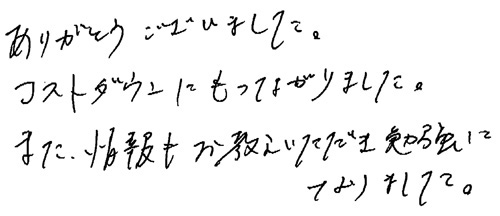 ありがとうございました。
コストダウンにもつながりました。
また、情報もお教えいただき勉強に
なりました。